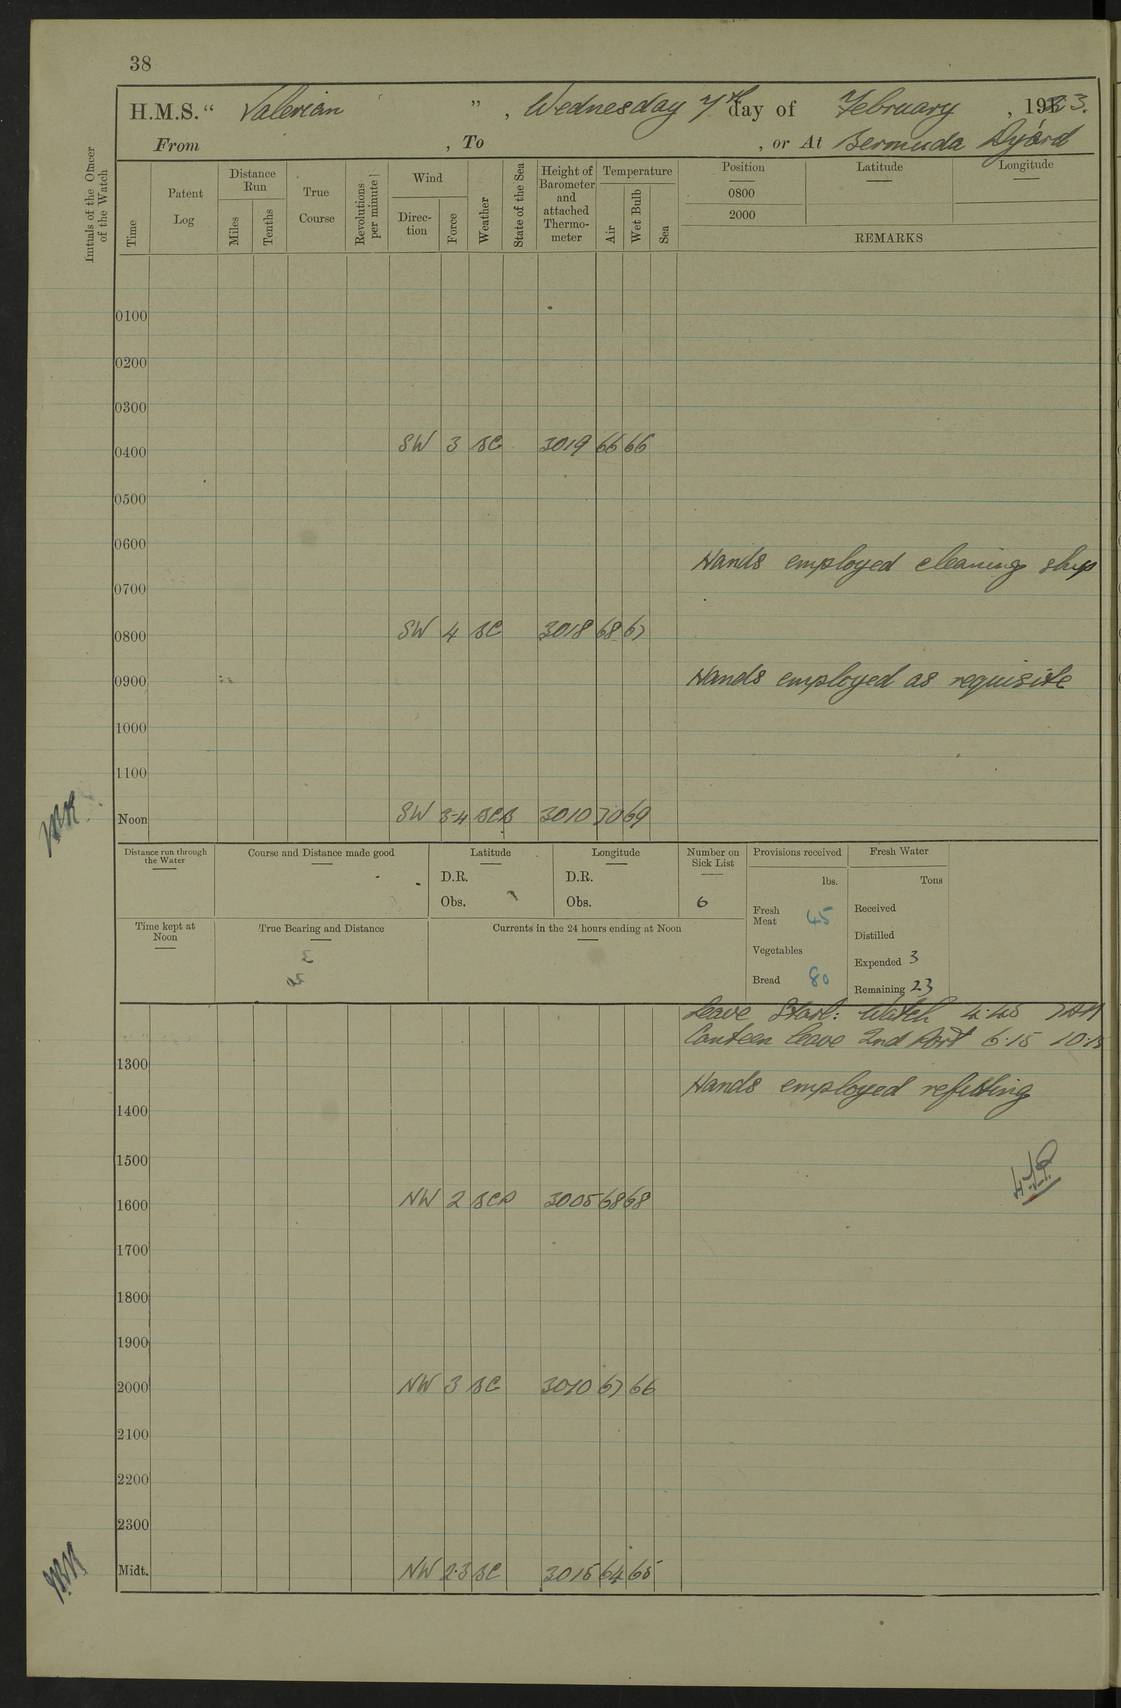 38
H.M.S. “ Valerian ” , Wednesday 7th day of February , 1923.
From , To , or At Bermuda Dyård
Initials of the Officer of the Watch
Time
Patent Log
Distance Run
Miles
Tenths
True Course
Revolutions per minute
Wind
Direc- tion
Force
Weather
State of the Sea
Height of Barometer and attached Thermo- meter
Temperature
Air
Wet Bulb
Sea
Position
Latitude
Longitude
0800
2000
REMARKS
0100
0200
0300
0400 SW 3 BC 3019 66 66
0500
0600
Hands employed cleaning ship
0700
0800 SW 4 BC 3018 68 67
0900 Hands employed as requisite
1000
1100
Noon SW 3-4 BCP 3010 70 69
Distance run through the Water
Course and Distance made good
Latitude
D.R.
Obs.
Longitude
D.R.
Obs.
Number on Sick List
6
Provisions received
lbs.
Fresh Meat 45
Vegetables
Bread 80
Fresh Water
Tons
Received
Distilled
Expended 3
Remaining 23
Time kept at Noon
True Bearing and Distance
Currents in the 24 hours ending at Noon
Leave Starb: Watch 4.45 7AM
Canteen leave 2nd Part 6.15 10.15
1300
Hands employed refitting
1400
1500
1600 NW 2 BCP 3005 68 68
1700
1800
1900
2000 NW 3 BC 3010 67 66
2100
2200
2300
Midt. NW 2-3 BC 3015 64 65